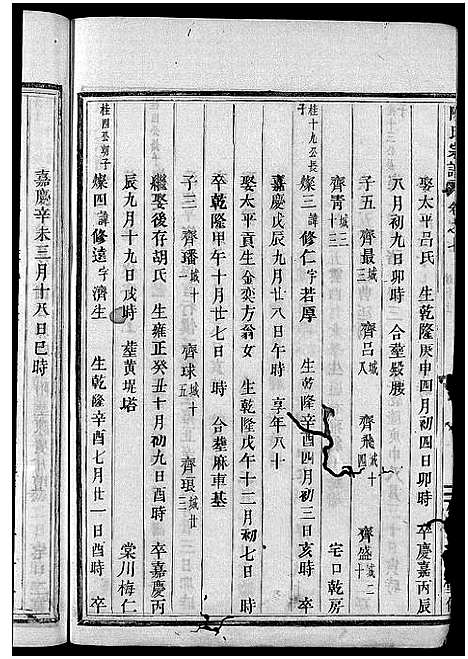 陳氏宗譜 卷之七
娶太平呂氏 生乾隆庚申四月初四日卯時 卒慶嘉丙辰
八月初九日卯時 合塟髮膁
子五 齊最城三 齊呂城八 齊飛城十四 齊盛城二十
齊青城二十三 宅口乾房
桂十九公長子
燦三諱修仁字若厚 生乾隆辛酉四月初三日亥時 卒
嘉慶戊辰九月廿八日午時 享年八十
娶太平貢生金奕方翁女 生乾隆戊午十二月初七日 時
卒乾隆甲午十月廿七日 時 合塟麻車基
子三 齊璠城十 齊球城十五 齊琅城廿三
繼娶後存胡氏 生雍正癸丑十月初九日酉時 卒嘉慶丙
辰九月十九日戌時 塟黄堤塔 棠川梅仁
桂四公朝子
燦四諱修遠字濟生 生乾隆辛酉七月廿一日酉時 卒
嘉慶辛未三月十八日巳時